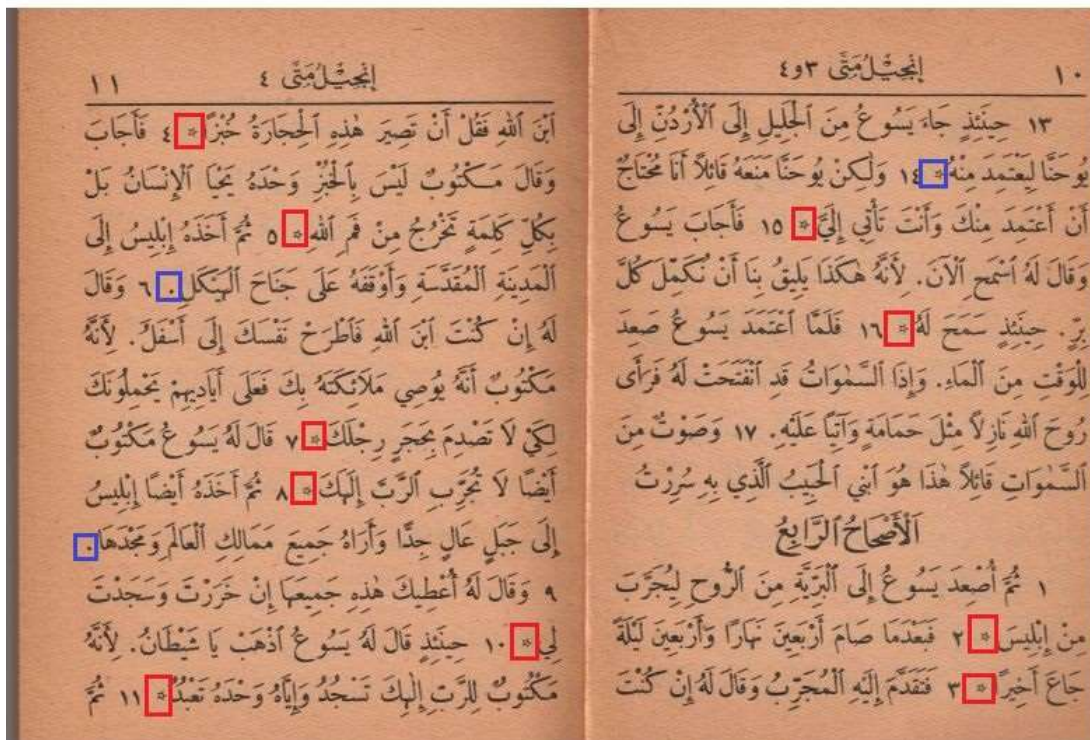 ١٠
إِنْجِيْلُ مَتَّى ٣ و ٤
١٣ حِينَئِذٍ جَاءَ يَسُوعُ مِنَ ٱلْجَلِيلِ إِلَى ٱلْأُرْدُنِّ إِلَى
يُوحَنَّا لِيَعْتَمِدَ مِنْهُ * ١٤ وَلٰكِنْ يُوحَنَّا مَنَعَهُ قَائِلاً أَنَا مُحْتَاجٌ
أَنْ أَعْتَمِدَ مِنْكَ وَأَنْتَ تَأْتِي إِلَيَّ * ١٥ فَأَجَابَ يَسُوعُ
وَقَالَ لَهُ ٱسْمَحِ ٱلْآنَ. لِأَنَّهُ هٰكَذَا يَلِيقُ بِنَا أَنْ نُكَمِّلَ كُلَّ
بِرٍّ. حِينَئِذٍ سَمَحَ لَهُ * ١٦ فَلَمَّا ٱعْتَمَدَ يَسُوعُ صَعِدَ
لِلْوَقْتِ مِنَ ٱلْمَاءِ. وَإِذَا ٱلسَّمٰوَاتُ قَدِ ٱنْفَتَحَتْ لَهُ فَرَأَى
رُوحَ ٱللهِ نَازِلاً مِثْلَ حَمَامَةٍ وَآتِيًا عَلَيْهِ. ١٧ وَصَوْتٌ مِنَ
ٱلسَّمٰوَاتِ قَائِلاً هٰذَا هُوَ ٱبْنِي ٱلْحَبِيبُ ٱلَّذِي بِهِ سُرِرْتُ
ٱلْأَصْحَاحُ ٱلرَّابِعُ
١ ثُمَّ أُصْعِدَ يَسُوعُ إِلَى ٱلْبَرِّيَّةِ مِنَ ٱلرُّوحِ لِيُجَرَّبَ
مِنْ إِبْلِيسَ * ٢ فَبَعْدَمَا صَامَ أَرْبَعِينَ نَهَارًا وَأَرْبَعِينَ لَيْلَةً
جَاعَ أَخِيرًا * ٣ فَتَقَدَّمَ إِلَيْهِ ٱلْمُجَرِّبُ وَقَالَ لَهُ إِنْ كُنْتَ
إِنْجِيْلُ مَتَّى ٤
١١
ٱبْنَ ٱللهِ فَقُلْ أَنْ تَصِيرَ هٰذِهِ ٱلْحِجَارَةُ خُبْزًا * ٤ فَأَجَابَ
وَقَالَ مَكْتُوبٌ لَيْسَ بِٱلْخُبْزِ وَحْدَهُ يَحْيَا ٱلْإِنْسَانُ بَلْ
بِكُلِّ كَلِمَةٍ تَخْرُجُ مِنْ فَمِ ٱللهِ * ٥ ثُمَّ أَخَذَهُ إِبْلِيسُ إِلَى
ٱلْمَدِينَةِ ٱلْمُقَدَّسَةِ وَأَوْقَفَهُ عَلَى جَنَاحِ ٱلْهَيْكَلِ. ٦ وَقَالَ
لَهُ إِنْ كُنْتَ ٱبْنَ ٱللهِ فَٱطْرَحْ نَفْسَكَ إِلَى أَسْفَلُ. لِأَنَّهُ
مَكْتُوبٌ أَنَّهُ يُوصِي مَلَائِكَتَهُ بِكَ فَعَلَى أَيَادِيهِمْ يَحْمِلُونَكَ
لِكَيْ لَا تَصْدِمَ بِحَجَرٍ رِجْلَكَ * ٧ قَالَ لَهُ يَسُوعُ مَكْتُوبٌ
أَيْضًا لَا تُجَرِّبِ ٱلرَّبَّ إِلٰهَكَ * ٨ ثُمَّ أَخَذَهُ أَيْضًا إِبْلِيسُ
إِلَى جَبَلٍ عَالٍ جِدًّا وَأَرَاهُ جَمِيعَ مَمَالِكِ ٱلْعَالَمِ وَمَجْدَهَا.
٩ وَقَالَ لَهُ أُعْطِيكَ هٰذِهِ جَمِيعَهَا إِنْ خَرَرْتَ وَسَجَدْتَ
لِي * ١٠ حِينَئِذٍ قَالَ لَهُ يَسُوعُ ٱذْهَبْ يَا شَيْطَانُ. لِأَنَّهُ
مَكْتُوبٌ لِلرَّبِّ إِلٰهِكَ تَسْجُدُ وَإِيَّاهُ وَحْدَهُ تَعْبُدُ * ١١ ثُمَّ